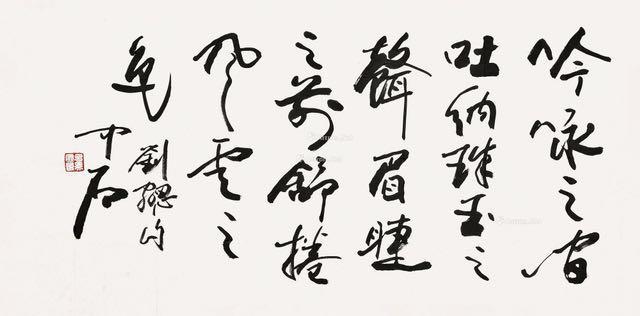 吟咏之间
吐纳珠玉之
聲眉睫
之前舒捲
风雲之
色
劉勰句
中石